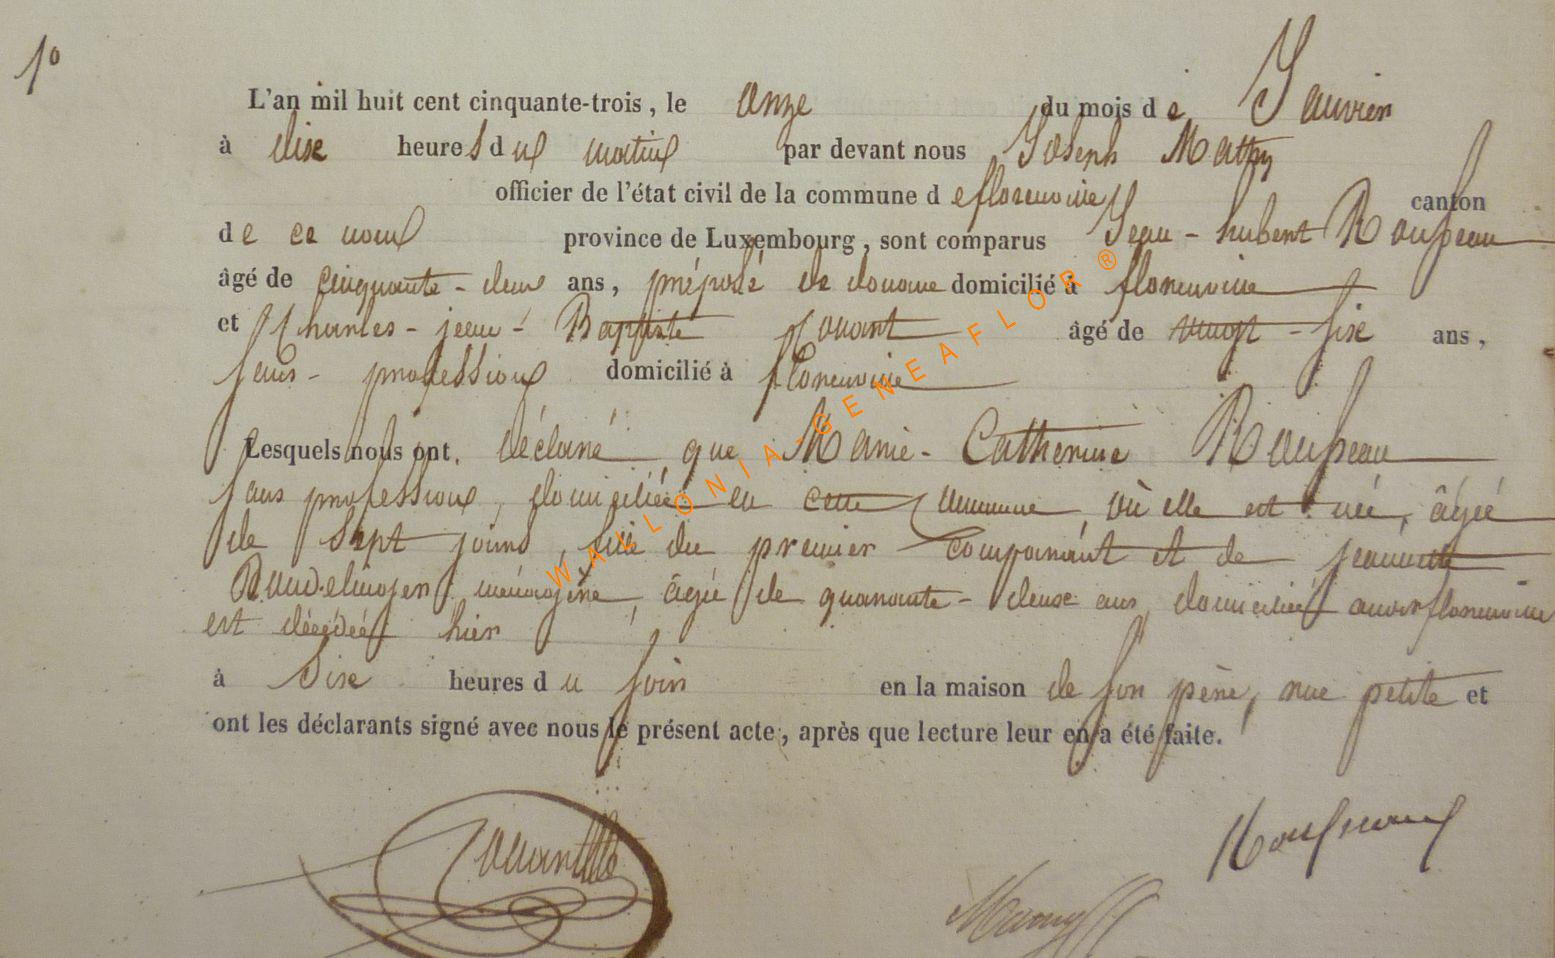 1°
L'an mil huit cent cinquante-trois, le onze du mois de Janvier
à dix heures du matin par devant nous Joseph Mathy
officier de l'état civil de la commune de florenville canton
de ce nom province de Luxembourg, sont comparus Jean-hubert Roupeau
âgé de cinquante-deux ans, préposé de douane domicilié à florenville
et Charles-jean-Baptiste âgé de vingt-six ans,
sans-profession domicilié à florenville
Lesquels nous ont déclaré que Marie-Catherine Roupeau
sans profession, domiciliée en cette commune où elle est née, âgée
de sept jours, fille du premier comparant et de jeannette
ménagère, âgée de quarante-deux ans, domiciliée florenville
est décédée hier
à dix heures du soir en la maison de son père, rue petite et
ont les déclarants signé avec nous le présent acte, après que lecture leur en a été faite.
WALLONIA-GENEAFLOR®